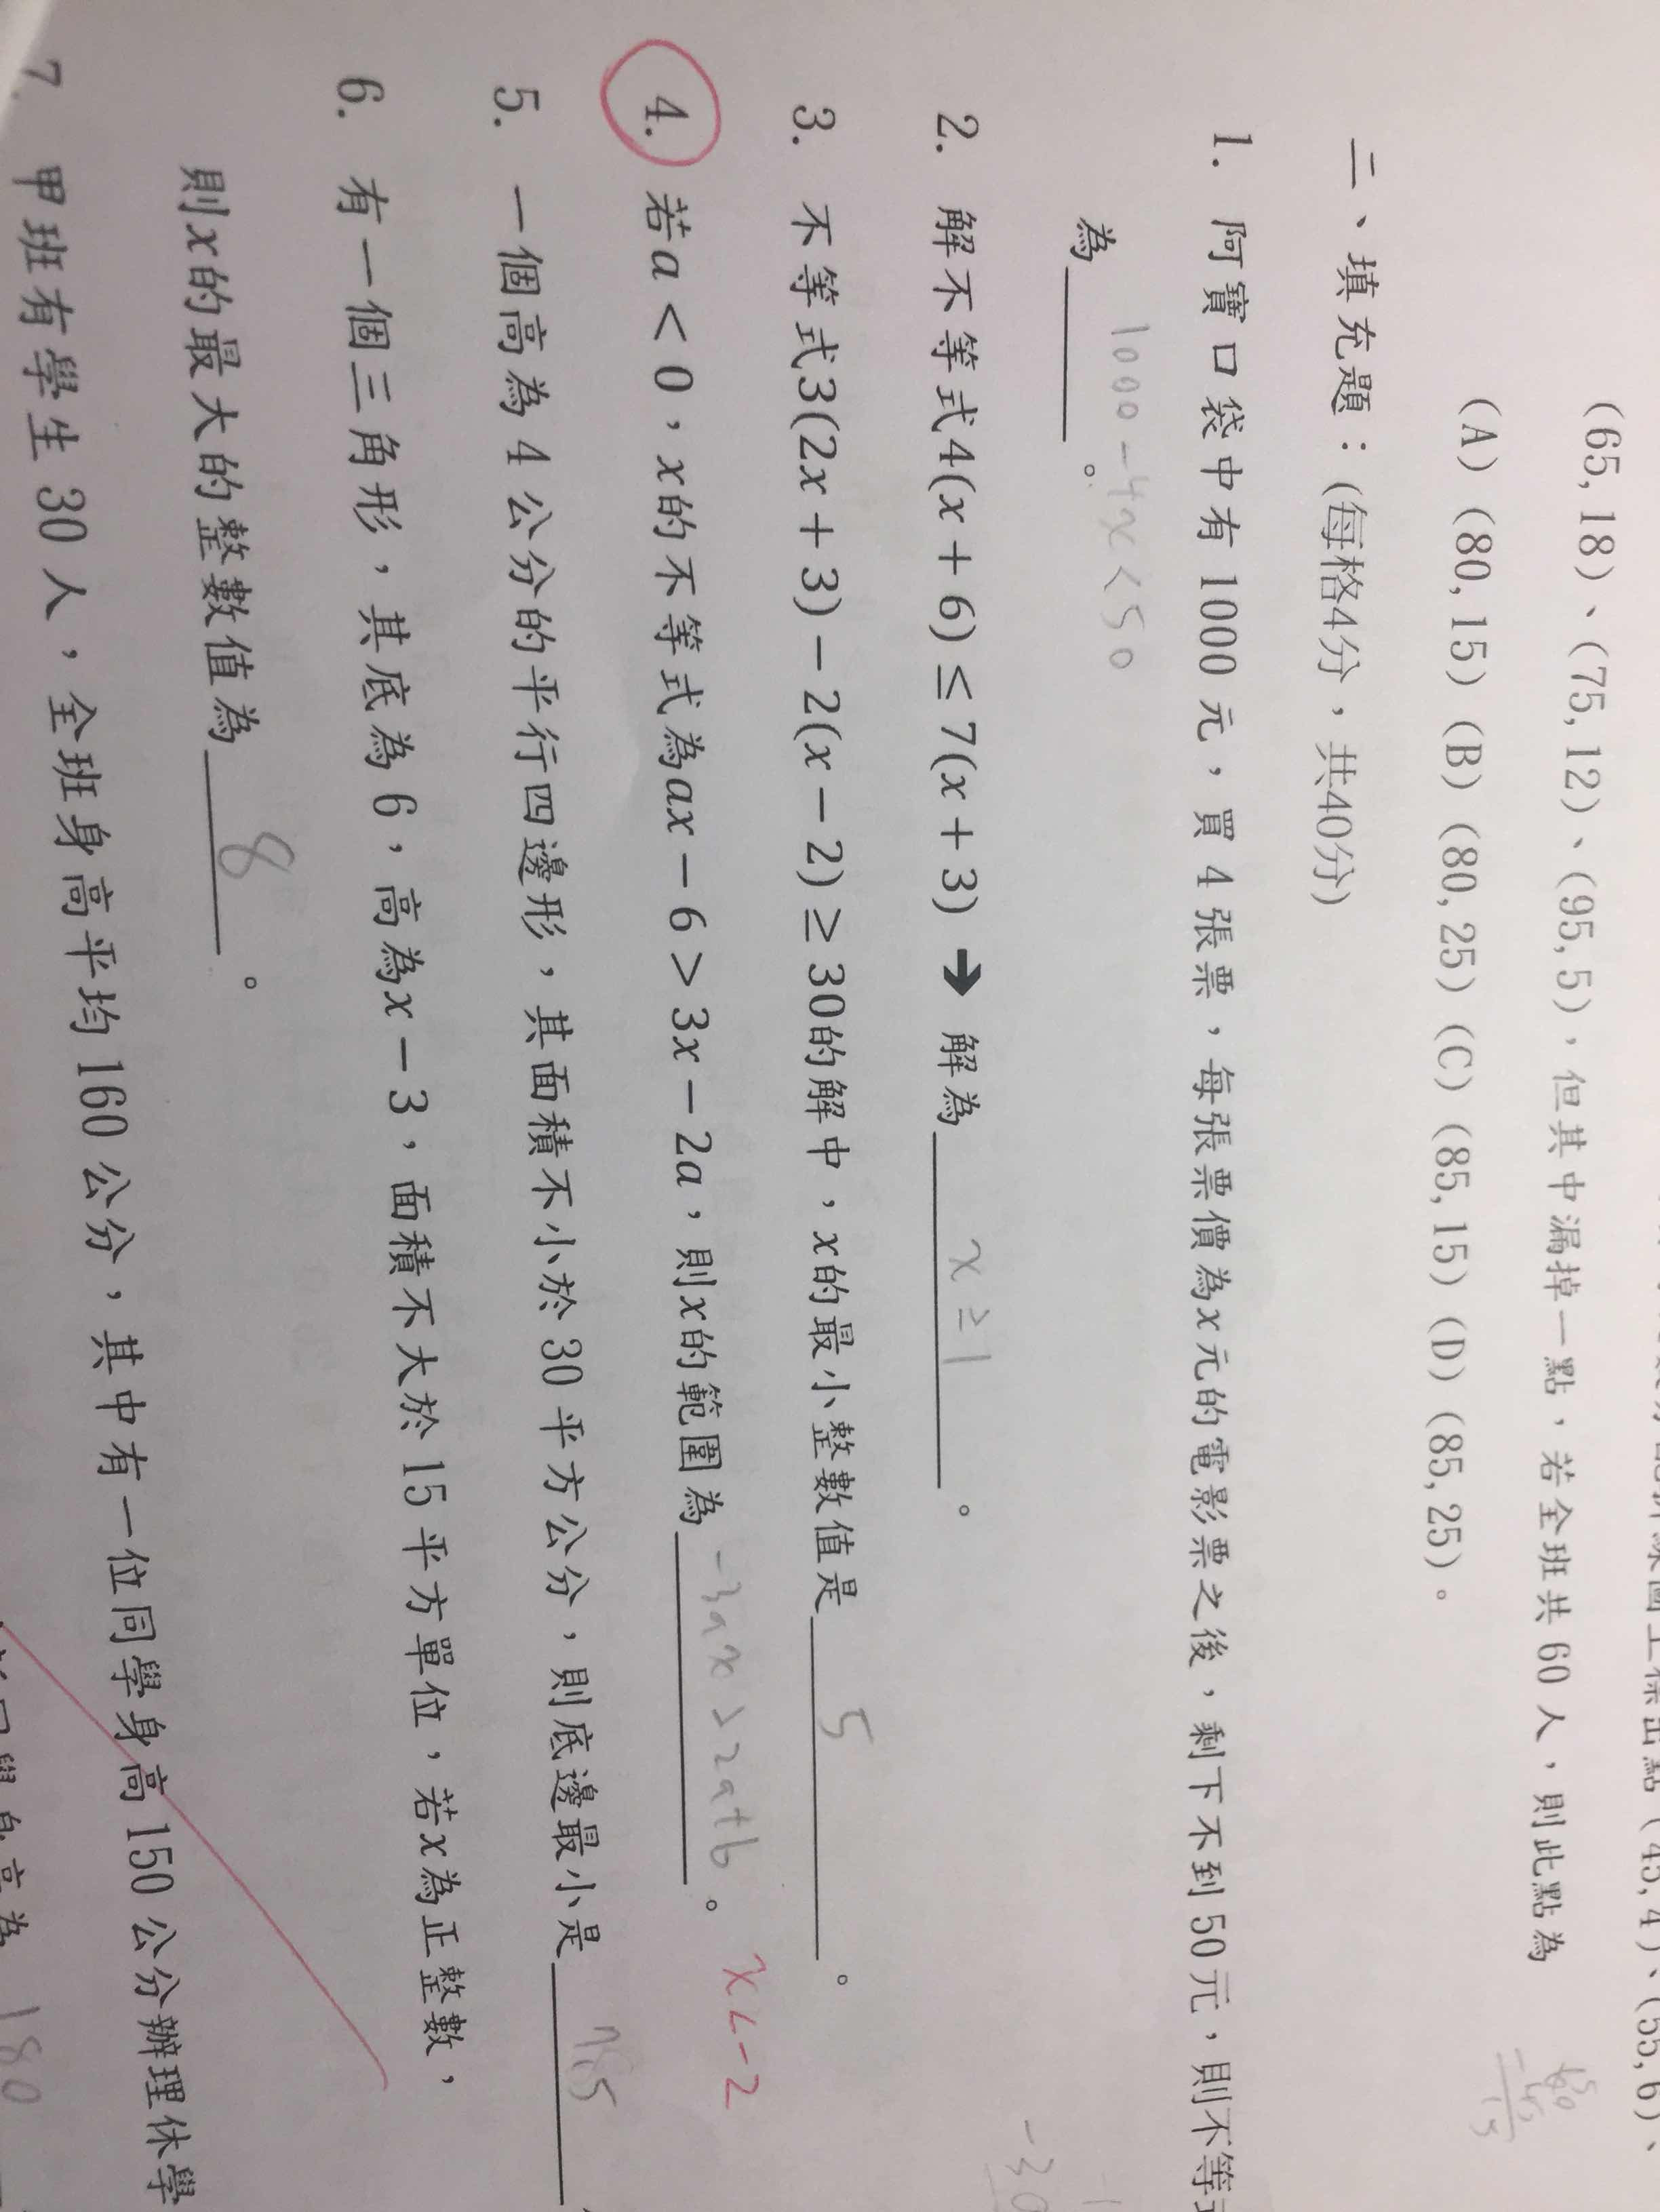 (65,18)、(75,12)、(95,5)，但其中漏掉一點，若全班共60人，則此點為
(A) (80,15) (B) (80,25) (C) (85,15) (D) (85,25)。
二、填充題：(每格4分，共40分)
1. 阿寶口袋中有1000元，買4張票，每張票價為x元的電影票之後，剩下不到50元，則不等
1000-4x<50
為______。
2. 解不等式4(x+6)≤7(x+3)➔ 解為 x≥1 。
3. 不等式3(2x+3)-2(x-2)≥30的解中，x的最小整數值是 5 。
4. 若a<0，x的不等式為ax-6>3x-2a，則x的範圍為 -3ax>2a+6 。 x<-2
5. 一個高為4公分的平行四邊形，其面積不小於30平方公分，則底邊最小是
6. 有一個三角形，其底為6，高為x-3，面積不大於15平方單位，若x為正整數，
則x的最大的整數值為 8 。
7. 甲班有學生30人，全班身高平均160公分，其中有一位同學身高150公分辦理休學
180